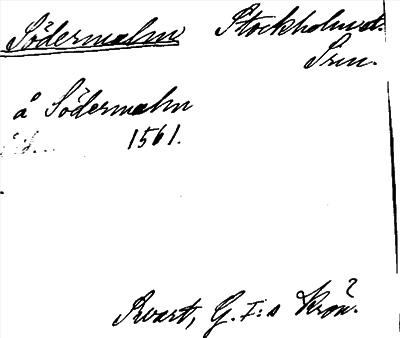 Södermalm Stockholms st.
Srm.
å Södermalm
1561.
Svart, G. I:s Krön.